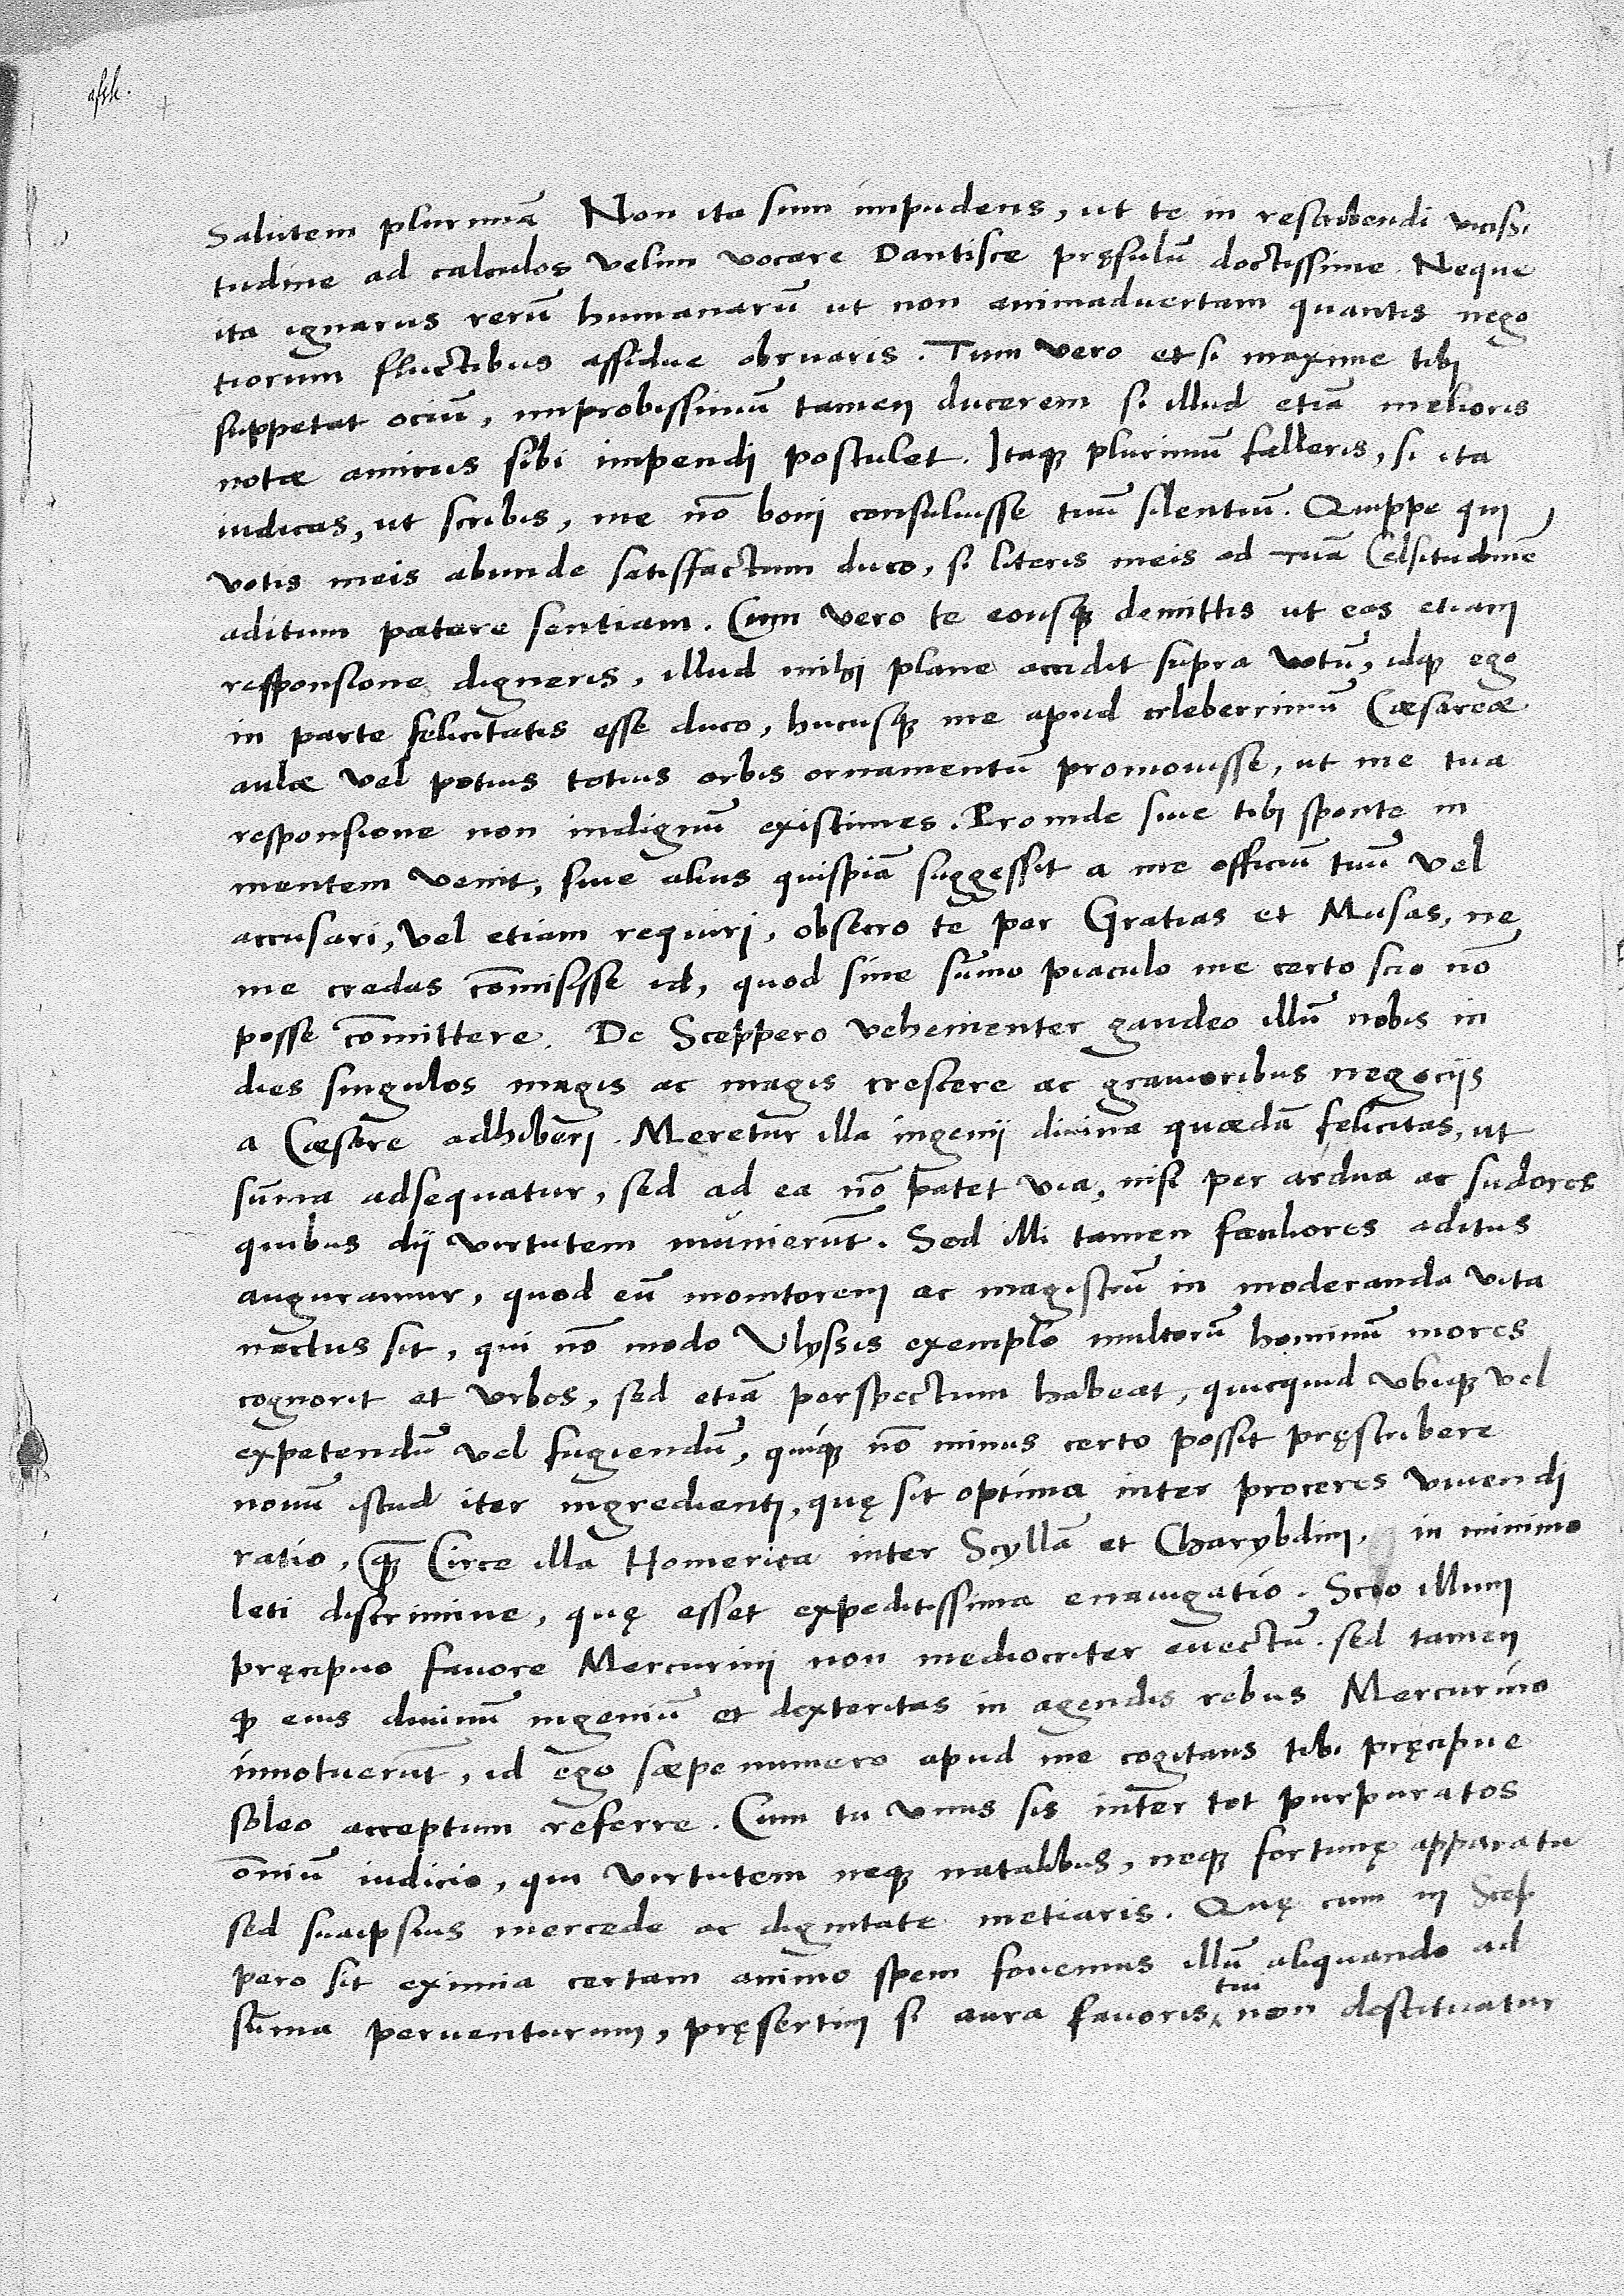 Salutem plurimā Non ita sum impudens, ut te in rescribendi vicissi
tudine ad calculos velim vocare Dantisce pręsulū doctissime. Neque
ita ignarus rerū humanarū ut non animadvertam quantis nego
tiorum fluctibus assidue obruaris. Tum vero et si maxime tibi
suppetat ociū, improbissimū tamen ducerem si illud etiā melioris
notæ amicus sibi impendi postulet. Itaq plurimū falleris, si ita
iudicas, ut scribis, me nō boni consuluisse tuū silentiū. Quippe qui
votis meis abunde satisfactum duco, si literis meis ad tuā Celsitudinē
aditum patere sentiam. Cum vero te eousq demittis ut eas etiam
responsione digneris, illud mihi plane accidit supra votū, idq ego
in parte felicitatis esse duco, hucusq me apud celeberrimū Cæsareæ
aulæ vel potius totius orbis ornamentū promovisse, ut me tua
responsione non indignū existimes. Proinde sive tibi sponte in
mentem venit, sive alius quispiā suggessit a me officiū tuū vel
accusari, vel etiam requiri, obsecro te per Gratias et Musas, ne
me credas cōmisisse id, quod sine sūmo piaculo me certo scio nō
posse cōmittere. De Sceppero vehementer gaudeo illū nobis in
dies singulos magis ac magis crescere ac gravioribus negociis
a Cæsare adhiberi. Meretur illa ingenii divina quædā felicitas, ut
sūma adsequatur, sed ad ea nō patet via, nisi per ardua ac sudores
quibus dii virtutem munierūt. Sed illi tamen faciliores aditus
auguramur, quod eū monitorem ac magistrū in moderanda vita
nactus sit, qui nō modo Vlyssis exemplo multorū hominū mores
cognorit et vrbes, sed etiā perspectum habeat, quicquid vbiq vel
expetendū vel fugiendū, quiq nō minus certo possit pręscribere
novū istud iter ingredienti, quę sit optima inter proceres vivendi
ratio, q̄ Circe illa Homerica inter Scyllā et Charybdim, in minimo
leti discrimine, quę esset expeditissima enavigatio. Scio illum
pręcipuo favore Mercurini non mediocriter evectū. sed tamen
q eius divinū ingeniū et dexteritas in agendis rebus Mercurino
innotuerūt, id ego sæpe numero apud me cogitans tibi pręcipue
soleo acceptum referre. Cum tu vnus sis inter tot purpuratos
ōniū iudicio, qui virtutem neq natalibus, neq fortunę apparatu
sed suaipsius mercede ac dignitate metiaris. Quę cum in Scep
pero sit eximia certam animo spem fovemus illū aliquando ad
sūma perventurum, pręsertim si aura favoris tui non destituatur